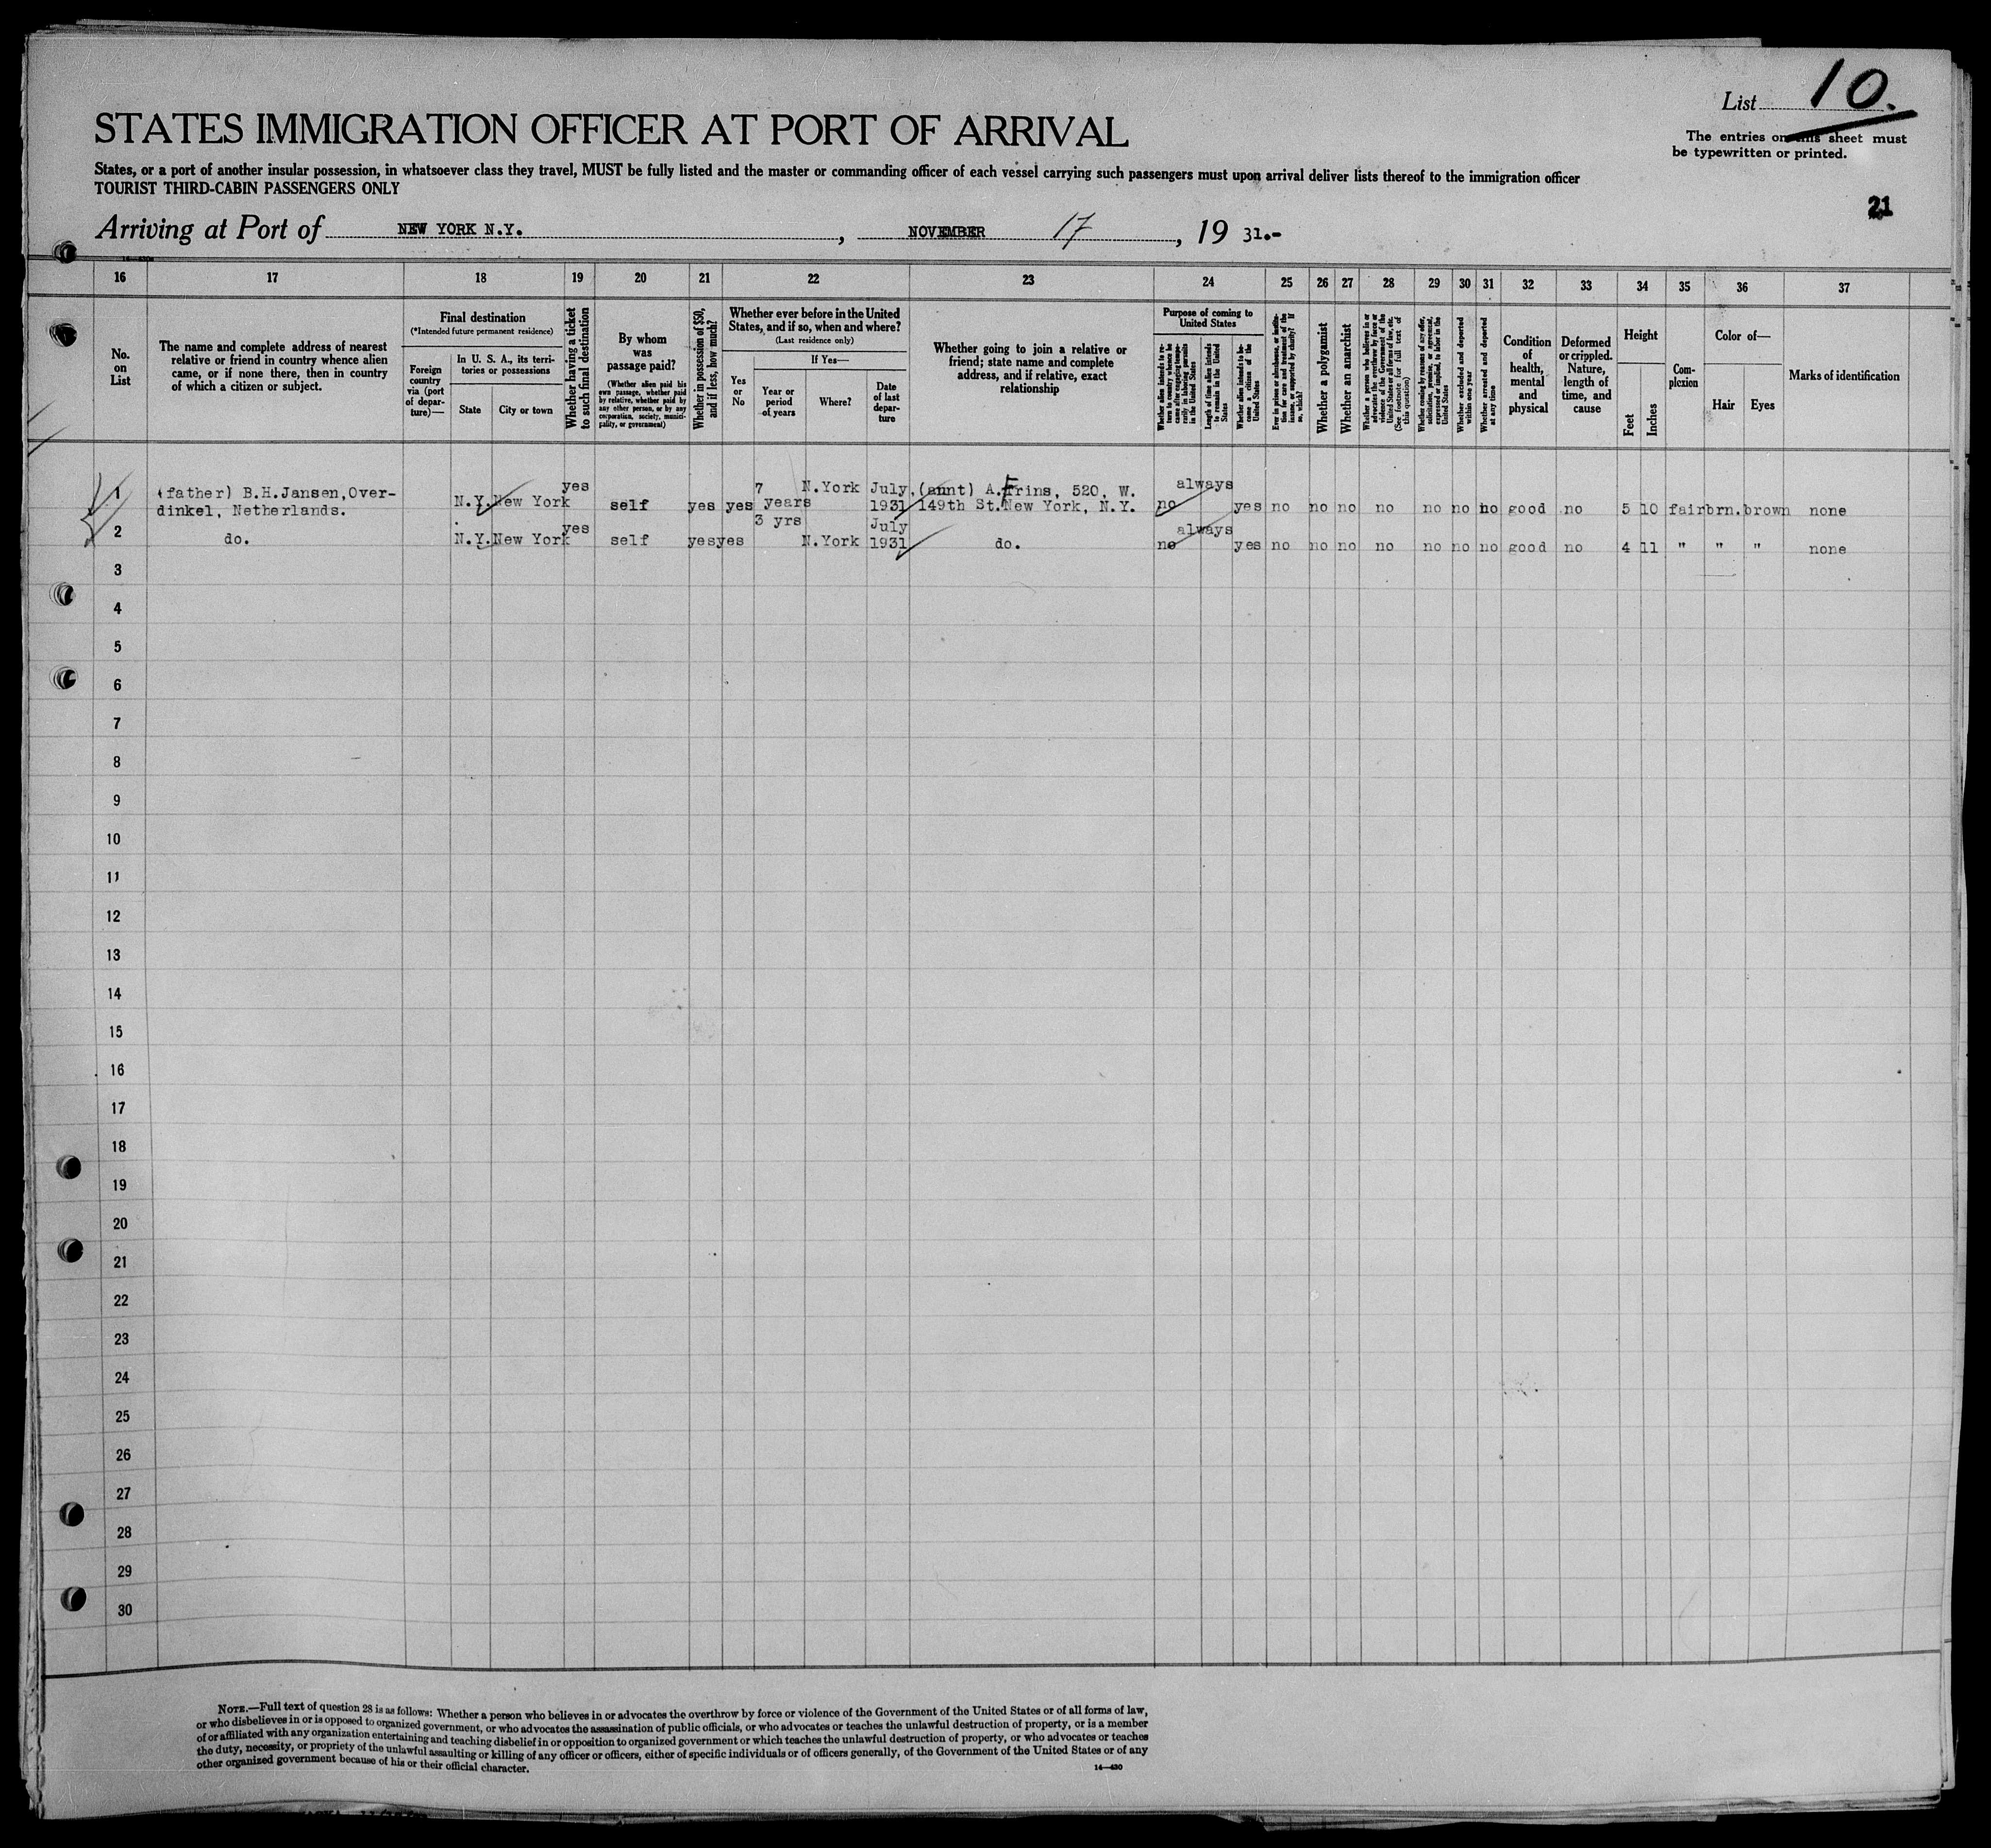 List 10.
The entries on this sheet must
be typewritten or printed.
STATES IMMIGRATION OFFICER AT PORT OF ARRIVAL
States, or a port of another insular possession, in whatsoever class they travel, MUST be fully listed and the master or commanding officer of each vessel carrying such passengers must upon arrival deliver lists thereof to the immigration officer
TOURIST THIRD-CABIN PASSENGERS ONLY
21
Arriving at Port of NEW YORK N.Y. , NOVEMBER 17 , 19 31.-
16 17 18 19 20 21 22 23 24 25 26 27 28 29 30 31 32 33 34 35 36 37
No. on List
The name and complete address of nearest
relative or friend in country whence alien
came, or if none there, then in country
of which a citizen or subject.
Final destination
(*Intended future permanent residence)
Foreign
country
via (port
of depar-
ture)—
In U. S. A., its terri-
tories or possessions
State
City or town
Whether having a ticket
to such final destination
By whom
was
passage paid?
(Whether alien paid his
own passage, whether paid
by relative, whether paid by
any other person, or by any
corporation, society, munici-
pality, or government)
Whether in possession of $50,
and if less, how much?
Whether ever before in the United
States, and if so, when and where?
(Last residence only)
Yes
or
No
If Yes—
Year or
period
of years
Where?
Date
of last
depar-
ture
Whether going to join a relative or
friend; state name and complete
address, and if relative, exact
relationship
Purpose of coming to
United States
Whether alien intends to re-
turn to country whence he
came after engaging tempo-
rarily in laboring pursuits
in the United States
Length of time alien intends
to remain in the United
States
Whether alien intends to be-
come a citizen of the
United States
Ever in prison or almshouse, or institu-
tion for care and treatment of the
insane, or supported by charity? If
so, which?
Whether a polygamist
Whether an anarchist
Whether a person who believes in or
advocates the overthrow by force or
violence of the Government of the
United States or all forms of law, etc.
(See footnote for full text of
this question)
Whether coming by reasons of any offer,
solicitation, promise, or agreement,
expressed or implied, to labor in the
United States
Whether excluded and deported
within one year
Whether arrested and deported
at any time
Condition
of
health,
mental
and
physical
Deformed
or crippled.
Nature,
length of
time, and
cause
Height
Feet
Inches
Com-
plexion
Color of—
Hair
Eyes
Marks of identification
yes 7 N.York July, always
1 (father) B.H.Jansen,Over- N.Y. New York years (aunt) A. Frins, 520, W.
dinkel, Netherlands. self yes yes 1931 149th St. New York, N.Y. no yes no no no no no no no good no 5 10 fair brn. brown none
2 yes 3 yrs July always
do. N.Y. New York self yes yes N.York 1931 do. no yes no no no no no no no good no 4 11 " " " none
3
4
5
6
7
8
9
10
11
12
13
14
15
16
17
18
19
20
21
22
23
24
25
26
27
28
29
30
NOTE.—Full text of question 28 is as follows: Whether a person who believes in or advocates the overthrow by force or violence of the Government of the United States or of all forms of law,
or who disbelieves in or is opposed to organized government, or who advocates the assassination of public officials, or who advocates or teaches the unlawful destruction of property, or is a member
of or affiliated with any organization entertaining and teaching disbelief in or opposition to organized government or which teaches the unlawful destruction of property, or who advocates or teaches
the duty, necessity, or propriety of the unlawful assaulting or killing of any officer or officers, either of specific individuals or of officers generally, of the Government of the United States or of any
other organized government because of his or their official character.
14—430